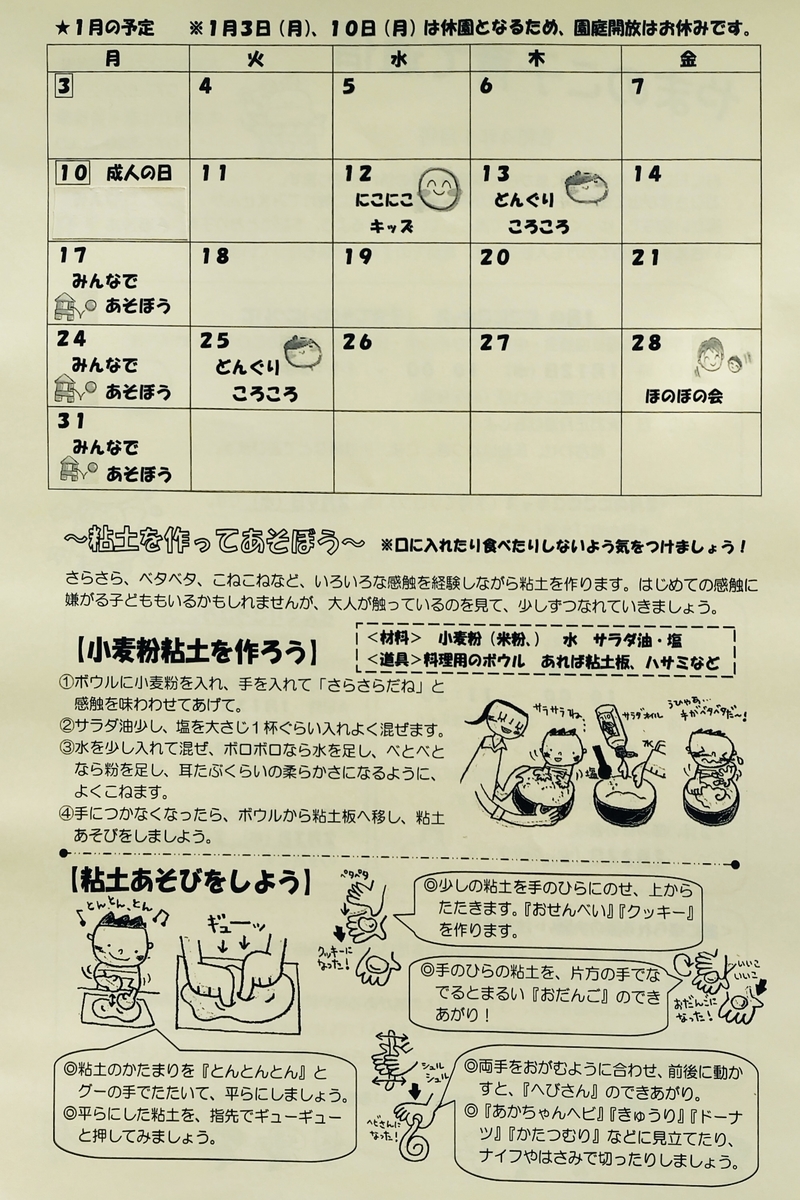 ★1月の予定　※1月3日（月）、10日（月）は休園となるため、園庭開放はお休みです。
月　火　水　木　金
3　4　5　6　7
10　成人の日　11　12　13　14
にこにこ　どんぐり
キッズ　ころころ
17　18　19　20　21
みんなで
あそぼう
24　25　26　27　28
みんなで　どんぐり
あそぼう　ころころ　ほのぼの会
31
みんなで
あそぼう
～粘土を作ってあそぼう～　※口に入れたり食べたりしないよう気をつけましょう！
さらさら、ベタベタ、こねこねなど、いろいろな感触を経験しながら粘土を作ります。はじめての感触に
嫌がる子どももいるかもしれませんが、大人が触っているのを見て、少しずつなれていきましょう。
【小麦粉粘土を作ろう】
＜材料＞　小麦粉（米粉、）　水　サラダ油・塩
＜道具＞料理用のボウル　あれば粘土板、ハサミなど
①ボウルに小麦粉を入れ、手を入れて「さらさらだね」と
感触を味わわせてあげて。
②サラダ油少し、塩を大さじ1杯ぐらい入れよく混ぜます。
③水を少し入れて混ぜ、ボロボロなら水を足し、べとべと
なら粉を足し、耳たぶくらいの柔らかさになるように、
よくこねます。
④手につかなくなったら、ボウルから粘土板へ移し、粘土
あそびをしましょう。
サラサラね
サラダオイル
水
塩
うひゃあ…
手がベタベタだ～！
【粘土あそびをしよう】
とんとんとん
ギューーッ
ペタペタ
クッキーに
なった！
◎少しの粘土を手のひらにのせ、上から
たたきます。『おせんべい』『クッキー』
を作ります。
◎手のひらの粘土を、片方の手でな
でるとまるい『おだんご』のでき
あがり！
いいこ
いいこ
おだんごに
なった！
◎粘土のかたまりを『とんとんとん』と
グーの手でたたいて、平らにしましょう。
◎平らにした粘土を、指先でギューギュー
と押してみましょう。
シュル
シュル
ヘビさんに
なった！
◎両手をおがむように合わせ、前後に動か
すと、『へびさん』のできあがり。
◎『あかちゃんヘビ』『きゅうり』『ドーナ
ツ』『かたつむり』などに見立てたり、
ナイフやはさみで切ったりしましょう。